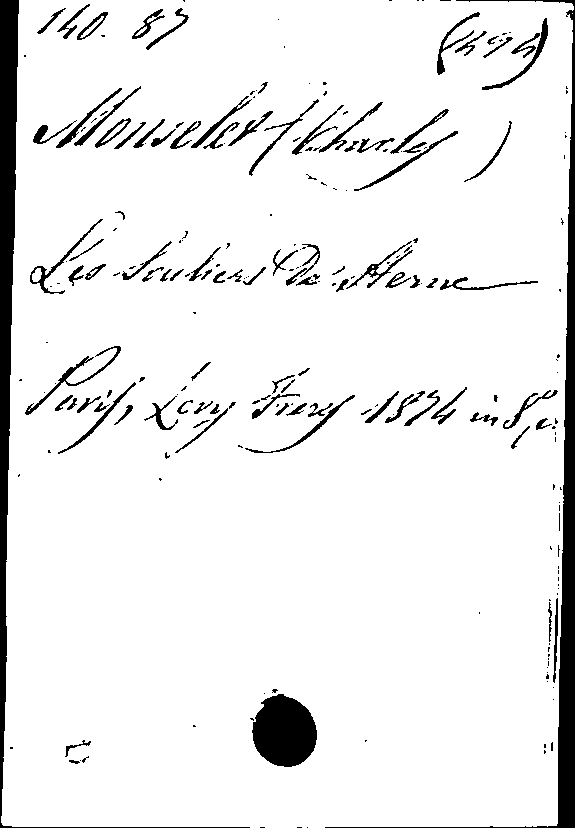 140. 87
(494)
Monselet (Charles)
Les Souliers De Sterne
Paris, Levy Freres 1874 in 8°,